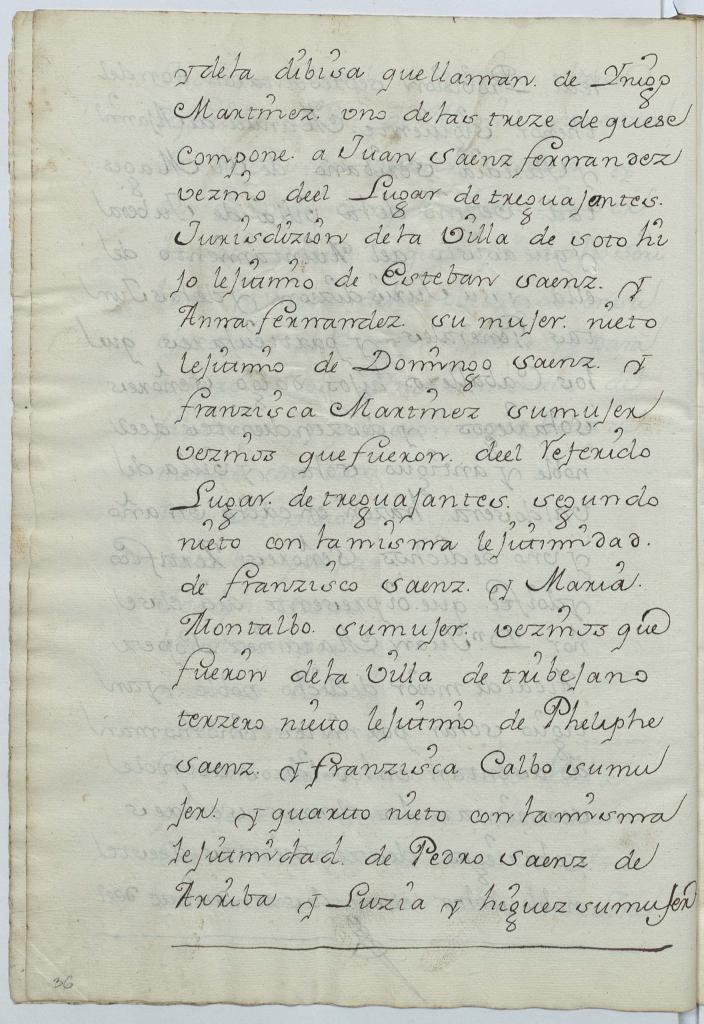 y dela dibisa que llaman. de Ynigo
Martinez. uno delas treze de que se
Compone. a Juan Saenz fernandez
vezino deel Lugar de treguajantes.
Jurisdizion dela Villa de soto hi
jo lejitimo de Esteban Saenz. y
Anna fernandez. su mujer. nieto
lejitimo de Domingo Saenz. y
franzisca Martinez su mujer
vezinos que fueron. deel referido
Lugar. de treguajantes. segundo
nieto con la misma lejitimidad.
de franzisco Saenz. y Maria.
Montalbo. su mujer. vezinos que
fueron dela Villa de tribejano
terzero nieto lejitimo de Phelaphe
Saenz. y franzisca Calbo su mu
jer. y quarto nieto con la misma
lejitimidad. de Pedro Saenz de
Arriba y Luzia y higuez su mujer
36